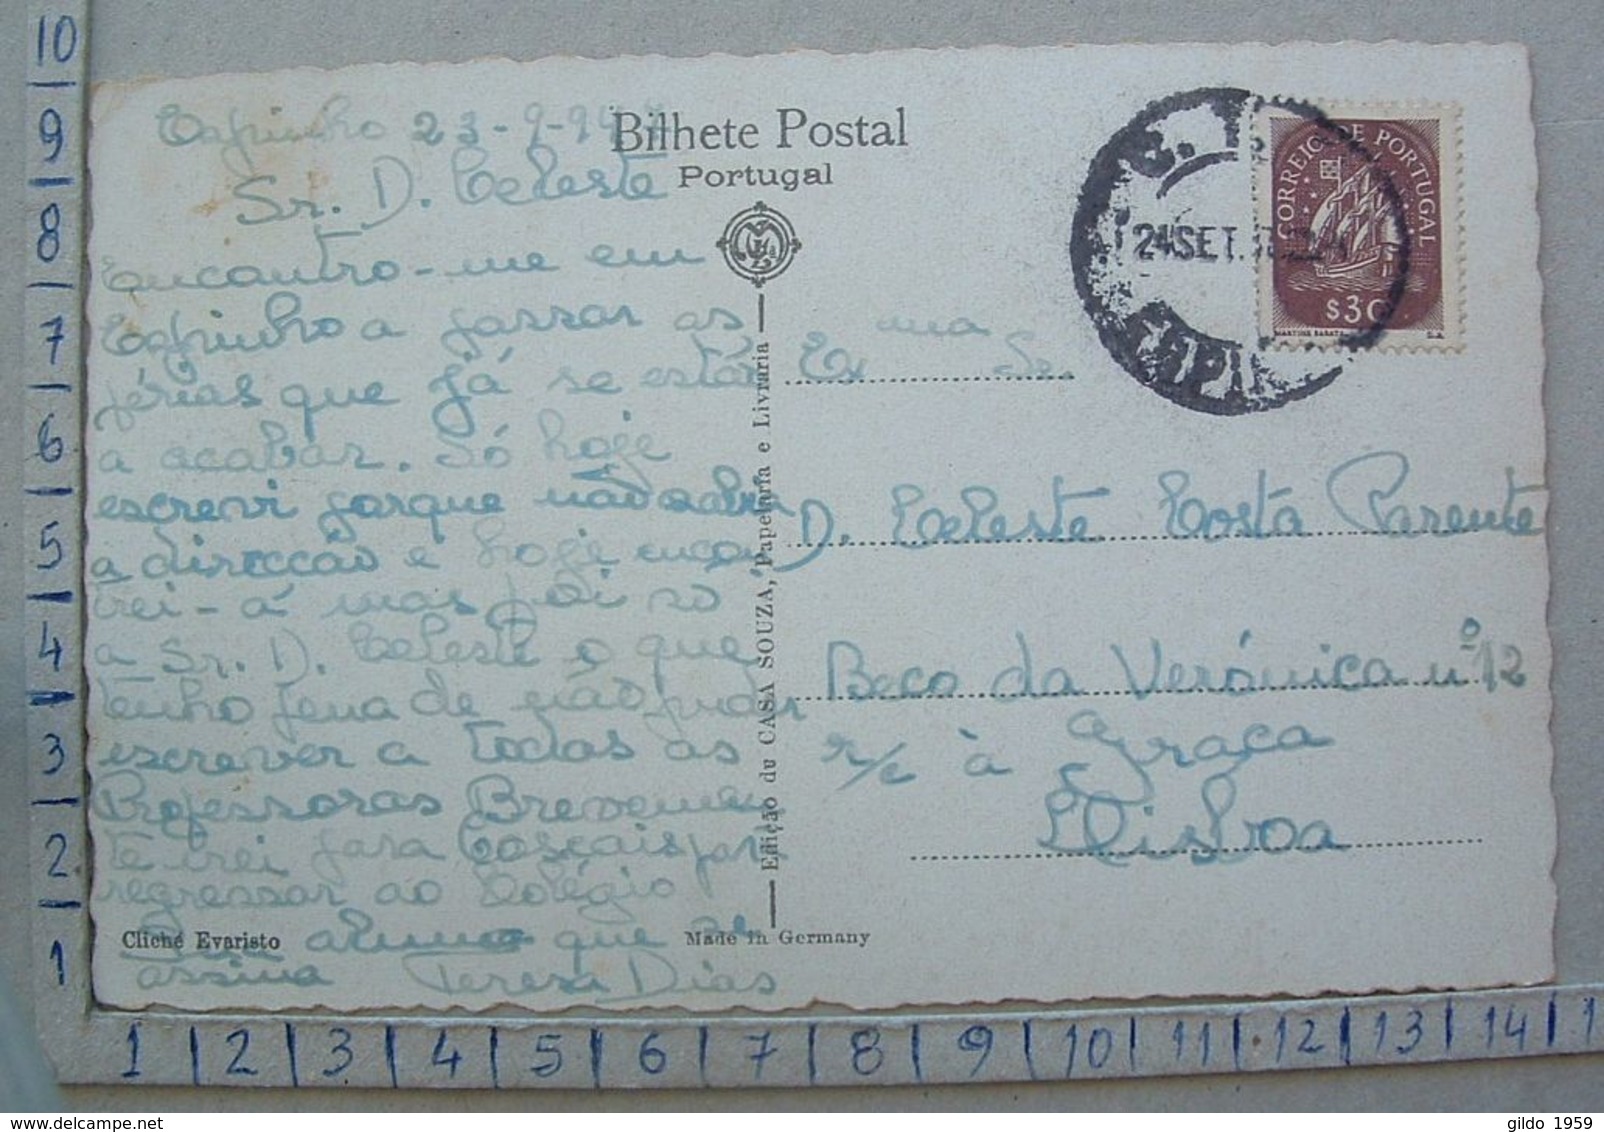 10
9
8
7
6
5
4
3
2
1
Bilhete Postal
Portugal
Espinho 23-9-947
Sr. D. Celeste
Encontro-me em
Espinho a passar as
férias que já se estão
a acabar. Só hoje
escrevi porque não sabia
a direcção e hoje encon
trei-a mas foi só
a Sr. D. Celeste o que
tenho pena de não poder
escrever a todas as
Professoras Brevemen
te irei para Cascais para
regressar ao Colégio
aluna que se
assina Teresa Dias
Cliché Evaristo
Made in Germany
Edição du CASA SOUZA, Papelaria e Livraria
CORREIO DE PORTUGAL
$30
MARTINS BARATA
24SET.
Ex ma Sr.
D. Celeste Costa Parente
Beco da Verónica nº 12
r/c à Graça
Lisboa
1 2 3 4 5 6 7 8 9 10 11 12 13 14 1
gildo 1959